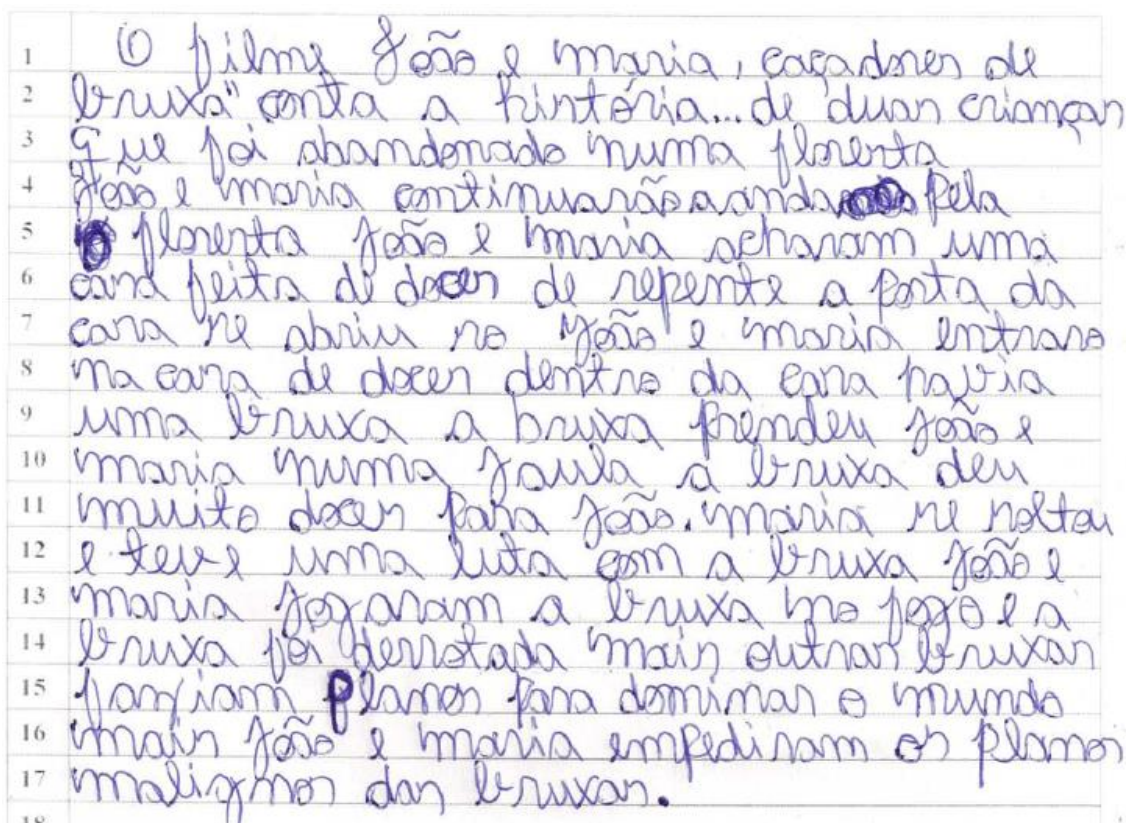 1 O filme João e maria, caçadores de
2 bruxa" conta a história... de duas crianças
3 que foi abandonado numa floresta
4 João e maria continuarão a anda pela
5 floresta João e maria acharam uma
6 casa feita de doces de repente a porta da
7 casa se abriu so João e maria entraro
8 na casa de doces dentro da casa havia
9 uma bruxa a bruxa prendeu João e
10 maria numa jaula a bruxa deu
11 muito doces para João. maria se soltou
12 e teve uma luta com a bruxa João e
13 maria jogaram a bruxa no fogo e a
14 bruxa foi derrotada mais outras bruxas
15 fasiam planos para dominar o mundo
16 mais João e maria empediram os planos
17 malignos das bruxas.
18